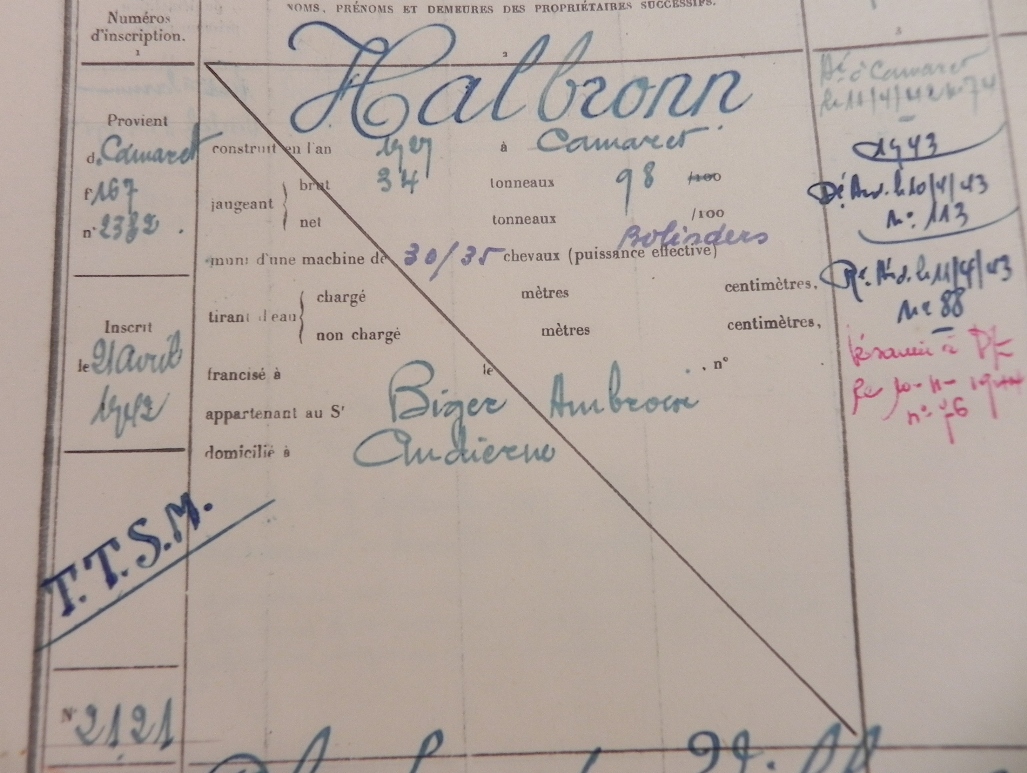 NOMS, PRÉNOMS ET DEMEURES DES PROPRIÉTAIRES SUCCESSIFS.
Numéros
d'inscription.
1
2
3
Halbronn
Provient
d Camaret
f° 167
n° 2382.
construit en l'an à Camaret
jaugeant
brut 34 tonneaux 98 /100
net tonneaux /100
Bolinders
muni d'une machine de 30/35 chevaux (puissance effective)
tirant d'eau
chargé mètres centimètres,
non chargé mètres centimètres,
Inscrit
le 21 avril
1942
francisé à le , n°
appartenant au Sr Biger Ambroise
domicilié à Audierne
T.T.S.M.
N° 2121
à Camaret
le 11/4/42 n° 74
1943
Dé Aud. le 10/4/43
n° 113
Aud. le 11/4/43
n° 88
désarmé à
n° 76